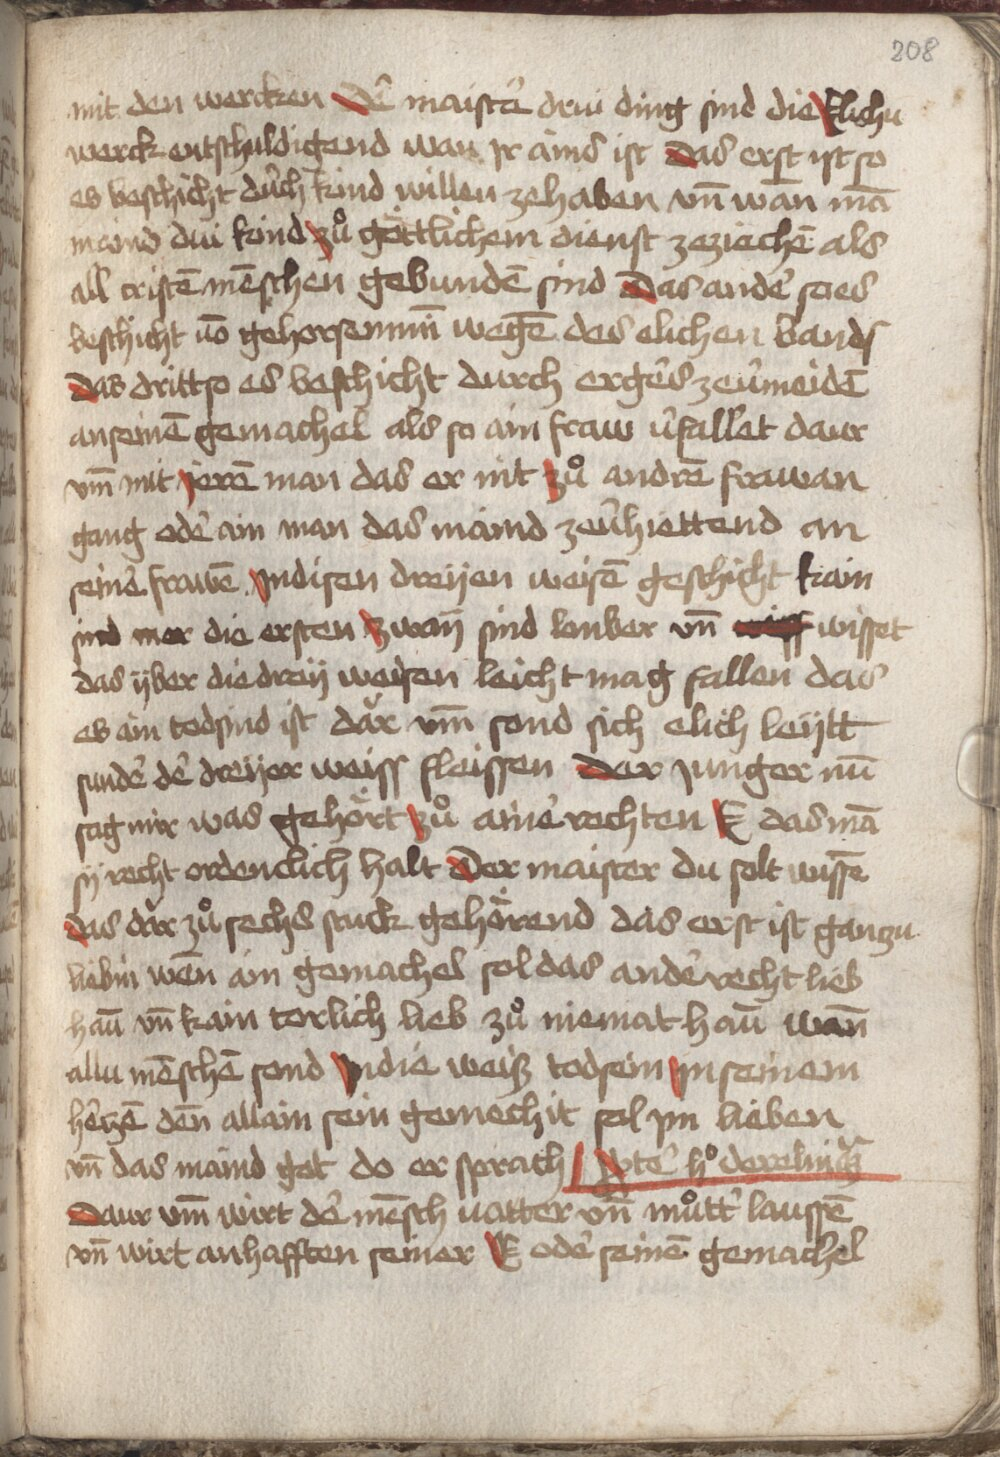 208
mit den wercken Dē maistē drui ding sind die Elichu
werck entschuldigend wan jr ains ist Das erst ist so
es beschicht dúch kind willen ze haben vn̄ wan mā
maind dui kind zů göttlichem dienst ze ziechē als
all cristē mēschen gebundē sind Das andē so es
beschicht vō gehorsemmin̄ wegē des elichen bands
Das dritt so es beschicht durch ergēs ze v̄meidē
an seinē gemachel als so ain fraw v̄fallet daur
vm̄ mit jerē man das er nit zů andrē frawan
gang odē ain man das maind ze v̄hiettend an
seinē frawē Jn disen dreyen weisē geschicht kain
sind mer die ersten zway sind lauber vn̄ wisset
das yber die dreÿ weisen leicht mag fallen das
es ain todsind ist dǎr vm̄ sond sich elich leÿtt
sundē dē dreÿer weiss fleissen Der Junger nū
sag mir was gehört zů ainē rechten E das mā
sÿ recht ordenclich halt Der maister du solt wissē
das dar zů sechs stuck gehörend das erst ist gantzu
liebin wēn ain gemachel sol das andē recht lieb
hān vn̄ kain torlich lieb zů niemat hān wan̄
allu mēschē sond Jn die weiß tod sein jn seinem
hērzē den̄ allain sein gemechit sol jm lieben
vn̄ das maind got do er sprach Pptē hº derelinq̄
Daur vm̄ wirt dē mēsch vatter vn̄ můttē laussē
vn̄ wirt anhafften seiner E odē seinē gemachel